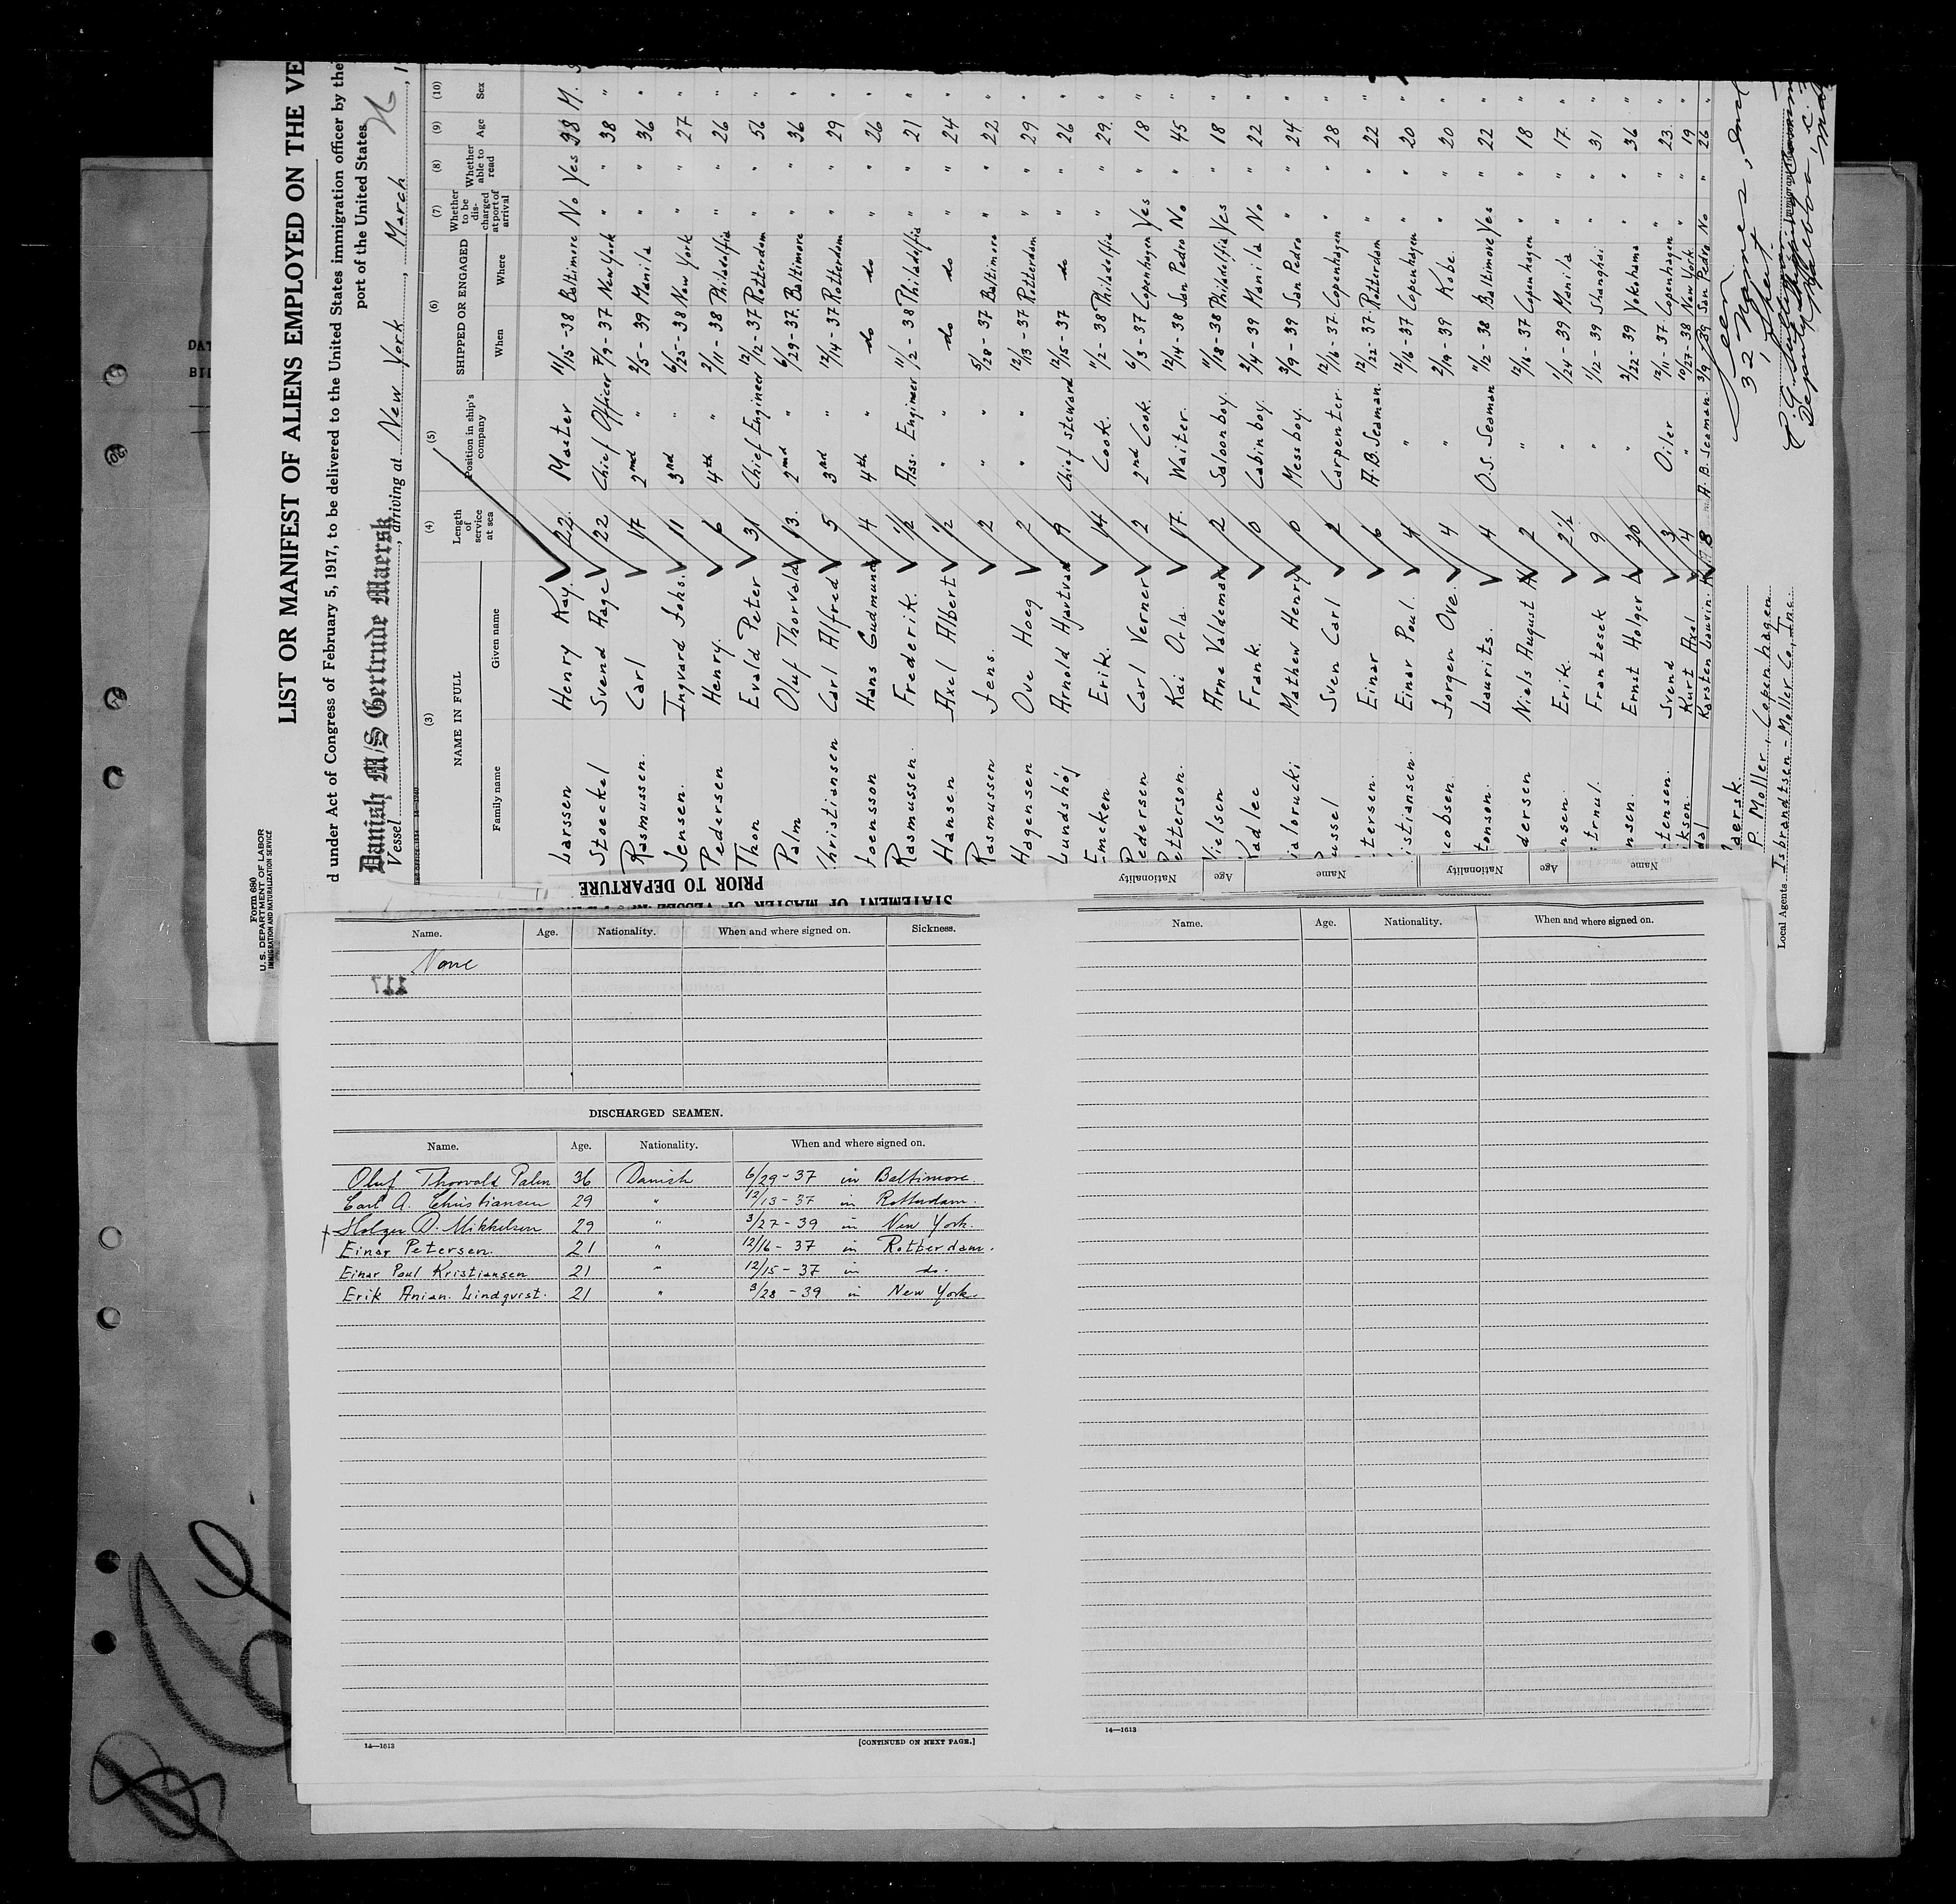 Form 680
U. S. DEPARTMENT OF LABOR
IMMIGRATION AND NATURALIZATION SERVICE
LIST OR MANIFEST OF ALIENS EMPLOYED ON THE VE
d under Act of Congress of February 5, 1917, to be delivered to the United States immigration officer by the
port of the United States
Vessel Danish M/S Gertrude Maersk, arriving at New York, March
(3) (4) (5) (6) (7) (8) (9) (10)
NAME IN FULL Length of service at sea Position in ship's company SHIPPED OR ENGAGED Whether to be discharged at port of arrival Whether able to read Age Sex
Family name Given name When Where
Larssen Henry Kay. 22. Master 11/15 - 38 Baltimore No Yes 38 M.
Stoeckel Svend Aage 22 Chief Officer 7/9 - 37 New York " " 38 "
Rasmussen. Carl 17 2nd " 2/5 - 39 Manila " " 36 "
Jensen. Ingvard Johs. 11 3rd " 6/25 - 38 New York " " 27 "
Pedersen Henry. 6 4th " 2/11 - 38 Philadelfia " " 26 "
Thon Evald Peter 31 Chief Engineer 12/12 - 37 Rotterdam " " 56 "
Palm Oluf Thorvald 13. 2nd " 6/29 - 37. Baltimore " " 36 "
Christiansen Carl Alfred 5 3rd " 12/14 - 37 Rotterdam " " 29 "
Hans Gudmund 4 4th " do do " " 26 "
Rasmussen. Frederik. 1 1/2 Ass. Engineer 11/2 - 38 Philadelfia " " 21 "
Hansen Axel Albert 1 1/2 " do do " " 24 "
Rasmussen Jens. 2 " 5/28 - 37 Baltimore " " 22 "
Hagensen Ove Hoeg 2 " 12/13 - 37 Rotterdam " " 29 "
Lundshöj Arnold Hjortvad 9 Chief steward 12/15 - 37 do " " 26 "
Emcken Erik. 14 Cook. 11/2 - 38 Philadelfia " " 29. "
Pedersen Carl Verner 2 2nd Cook. 6/3 - 37 Copenhagen Yes " 18 "
etterson. Kai Orla. 17. Waiter. 12/14 - 38 San Pedro No " 45 "
Nielsen Arne Valdemar 2 Saloonboy. 11/18 - 38 Philadelfia Yes " 18 "
Kadlec Frank. 0 Cabinboy. 2/4 - 39 Manila No " 22 "
ialorucki Mathew Henry 0 Messboy. 3/9 - 39 San Pedro " " 24 "
ussel Sven Carl 2 Carpenter. 12/16 - 37. Copenhagen " " 28 "
tersen. Einar 6 A.B. Seaman. 12/22 - 37 Rotterdam " " 22 "
istiansen. Einar Poul. 4 " 12/16 - 37 Copenhagen " " 20 "
cobsen. Jorgen Ove. 4 " 2/19 - 39 Kobe. " " 20 "
tonson. Laurits. 4 O.S. Seaman 11/12 - 38 Baltimore Yes " 22 "
dersen Niels August H 2 " 12/16 - 37 Copenhagen " " 18 "
nsen. Erik. 2 1/2 " 1/24 - 39 Manila " " 17. "
trnul. Frantesek 9 " 1/12 - 39 Shanghai " " 31 "
nsen. Ernst Holger 20 " 2/22 - 39 Yokohama " " 36 "
tensen. Svend 3 Oiler 12/11 - 37 Copenhagen " " 23. "
ikson. Kurt Axel 4 " 10/27 - 38 New York. " " 19 "
dal Karsten Lauvin. 8 A. B. Seaman. 3/9 - 39 San Pedro No " 26 "
32 names, incl
1 sheet.
aersk.
P. Moller, Copenhagen.
Local Agents Isbrandtsen - Moller Co., Inc.
STATEMENT OF MASTER OF VESSEL
PRIOR TO DEPARTURE
Name Age Nationality Name Age Nationality
Name. Age. Nationality. When and where signed on. Sickness.
None
117
DISCHARGED SEAMEN.
Name. Age. Nationality. When and where signed on.
Oluf Thorvald Palm 36 Danish 6/29 - 37 in Baltimore
Carl A. Christiansen 29 " 12/13 - 37 in Rotterdam.
Holger D. Mikkelsen 29 " 3/27 - 39 in New York.
Einar Petersen. 21 " 12/16 - 37 in Rotterdam.
Einar Poul Kristiansen 21 " 12/15 - 37 in do.
Erik Anian. Lindqvist. 21 " 3/28 - 39 in New York.
14—1613
[CONTINUED ON NEXT PAGE.]
Name. Age. Nationality. When and where signed on.
14—1613